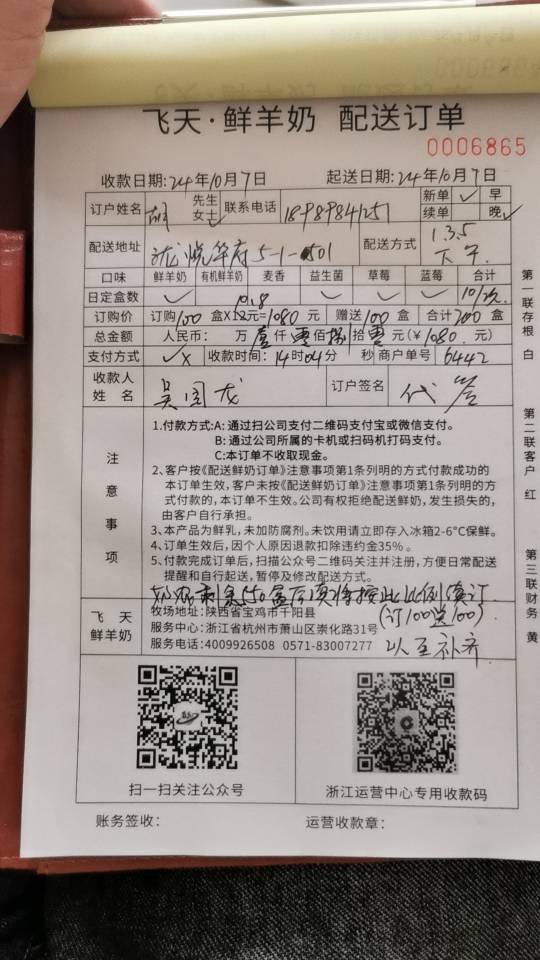 飞天·鲜羊奶 配送订单
0006865
收款日期:24年10月7日 起送日期:24年10月7日
订户姓名 胡 先生 女士✓ 联系电话 新单 ✓ 早
续单 晚✓
配送地址 龙悦华府5-1- 配送方式 1.3.5 下午
口味 鲜羊奶 有机鲜羊奶 麦香 益生菌 草莓 蓝莓 合计
日定盒数 ✓ ✓ ✓ ✓ ✓ 10/次
订购价 订购100盒X10.8元=1080元 赠送100盒 合计200盒
总金额 人民币: 万壹仟零佰捌拾零元(¥1080元)
支付方式 ✓X 收款时间:14时04分 秒 商户单号 6442
收款人姓名 吴国龙 订户签名 代签
注意事项
1.付款方式:A:通过扫公司支付二维码支付宝或微信支付。
B:通过公司所属的卡机或扫码机打码支付。
C:本订单不收取现金。
2、客户按《配送鲜奶订单》注意事项第1条列明的方式付款成功的
本订单生效,客户未按《配送鲜奶订单》注意事项第1条列明的方
式付款的,本订单不生效。公司有权拒绝配送鲜奶,发生损失的,
由客户自行承担。
3、本产品为鲜乳,未加防腐剂。未饮用请立即存入冰箱2-6°C保鲜。
4、订单生效后,因个人原因退款扣除违约金35%。
5、付款完成订单后,扫描公众号二维码关注并注册,方便日常配送
提醒和自行起送,暂停及修改配送方式。
奶店剩余150盒后须将按此比例续订
(订100送100)
以至补齐
飞天鲜羊奶
牧场地址:陕西省宝鸡市千阳县
服务中心:浙江省杭州市萧山区崇化路31号
服务电话:4009926508 0571-83007277
扫一扫关注公众号 浙江运营中心专用收款码
账务签收: 运营收款章:
第一联存根 白
第二联客户 红
第三联财务 黄